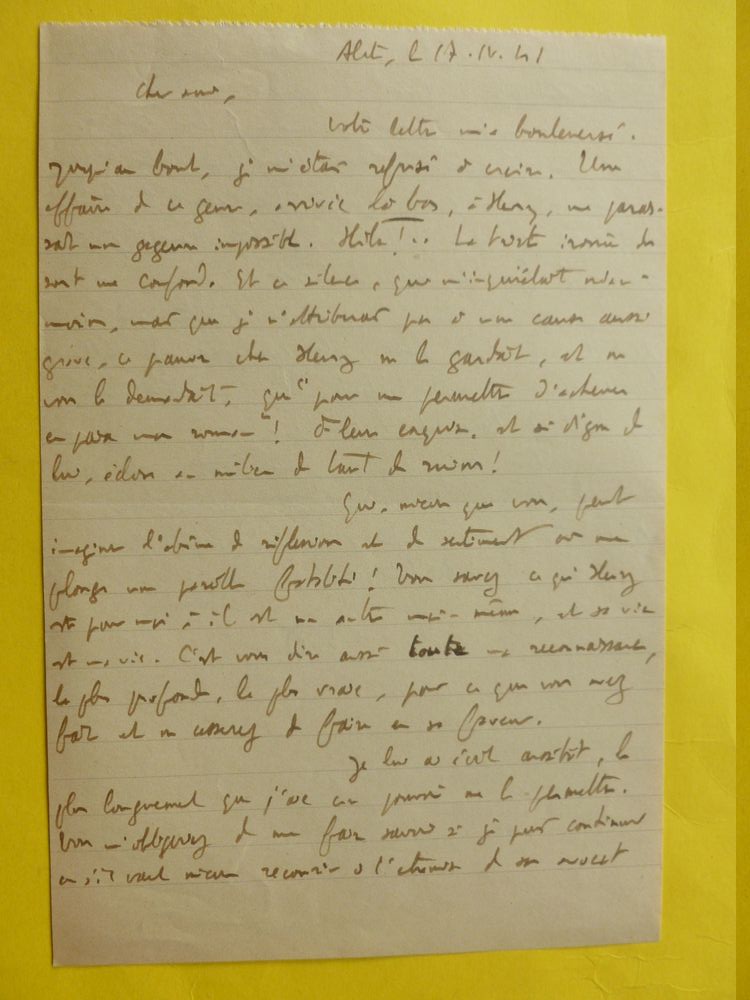 Alet, le 17.IV.41
Cher ami,
Votre lettre m'a bouleversé.
Jusqu'au bout, je m'étais refusé à croire. Une
affaire de ce genre, arrivée là-bas, à Henry, me parais-
sait une gageure impossible. Hélas!.. La triste ironie du
sort me confond. Et ce silence, qui m'inquiétait néan-
moins, mais que je n'attribuais pas à une cause aussi
grave, ce pauvre cher Henry ne le gardait, et ne
vous le demandait, que "pour me permettre d'achever
en paix mon roman"! Ô fleur exquise, et si digne de
lui, éclose au milieu de tant de ruines!
Qui, mieux que vous, peut
imaginer l'abîme de réflexions et de sentiments où me
plonge une pareille fatalité! Vous savez ce qu'Henry
est pour moi : il est un autre moi-même, et sa vie
est ma vie. C'est vous dire aussi toute ma reconnaissance,
la plus profonde, la plus vraie, pour ce que vous avez
fait et ne cesserez de faire en sa faveur.
Je lui ai écrit aussitôt, le
plus longuement que j'aie cru pouvoir me le permettre.
Vous m'obligerez de me faire savoir si je puis continuer
ou s'il vaut mieux recourir à l'entremise de son avocat